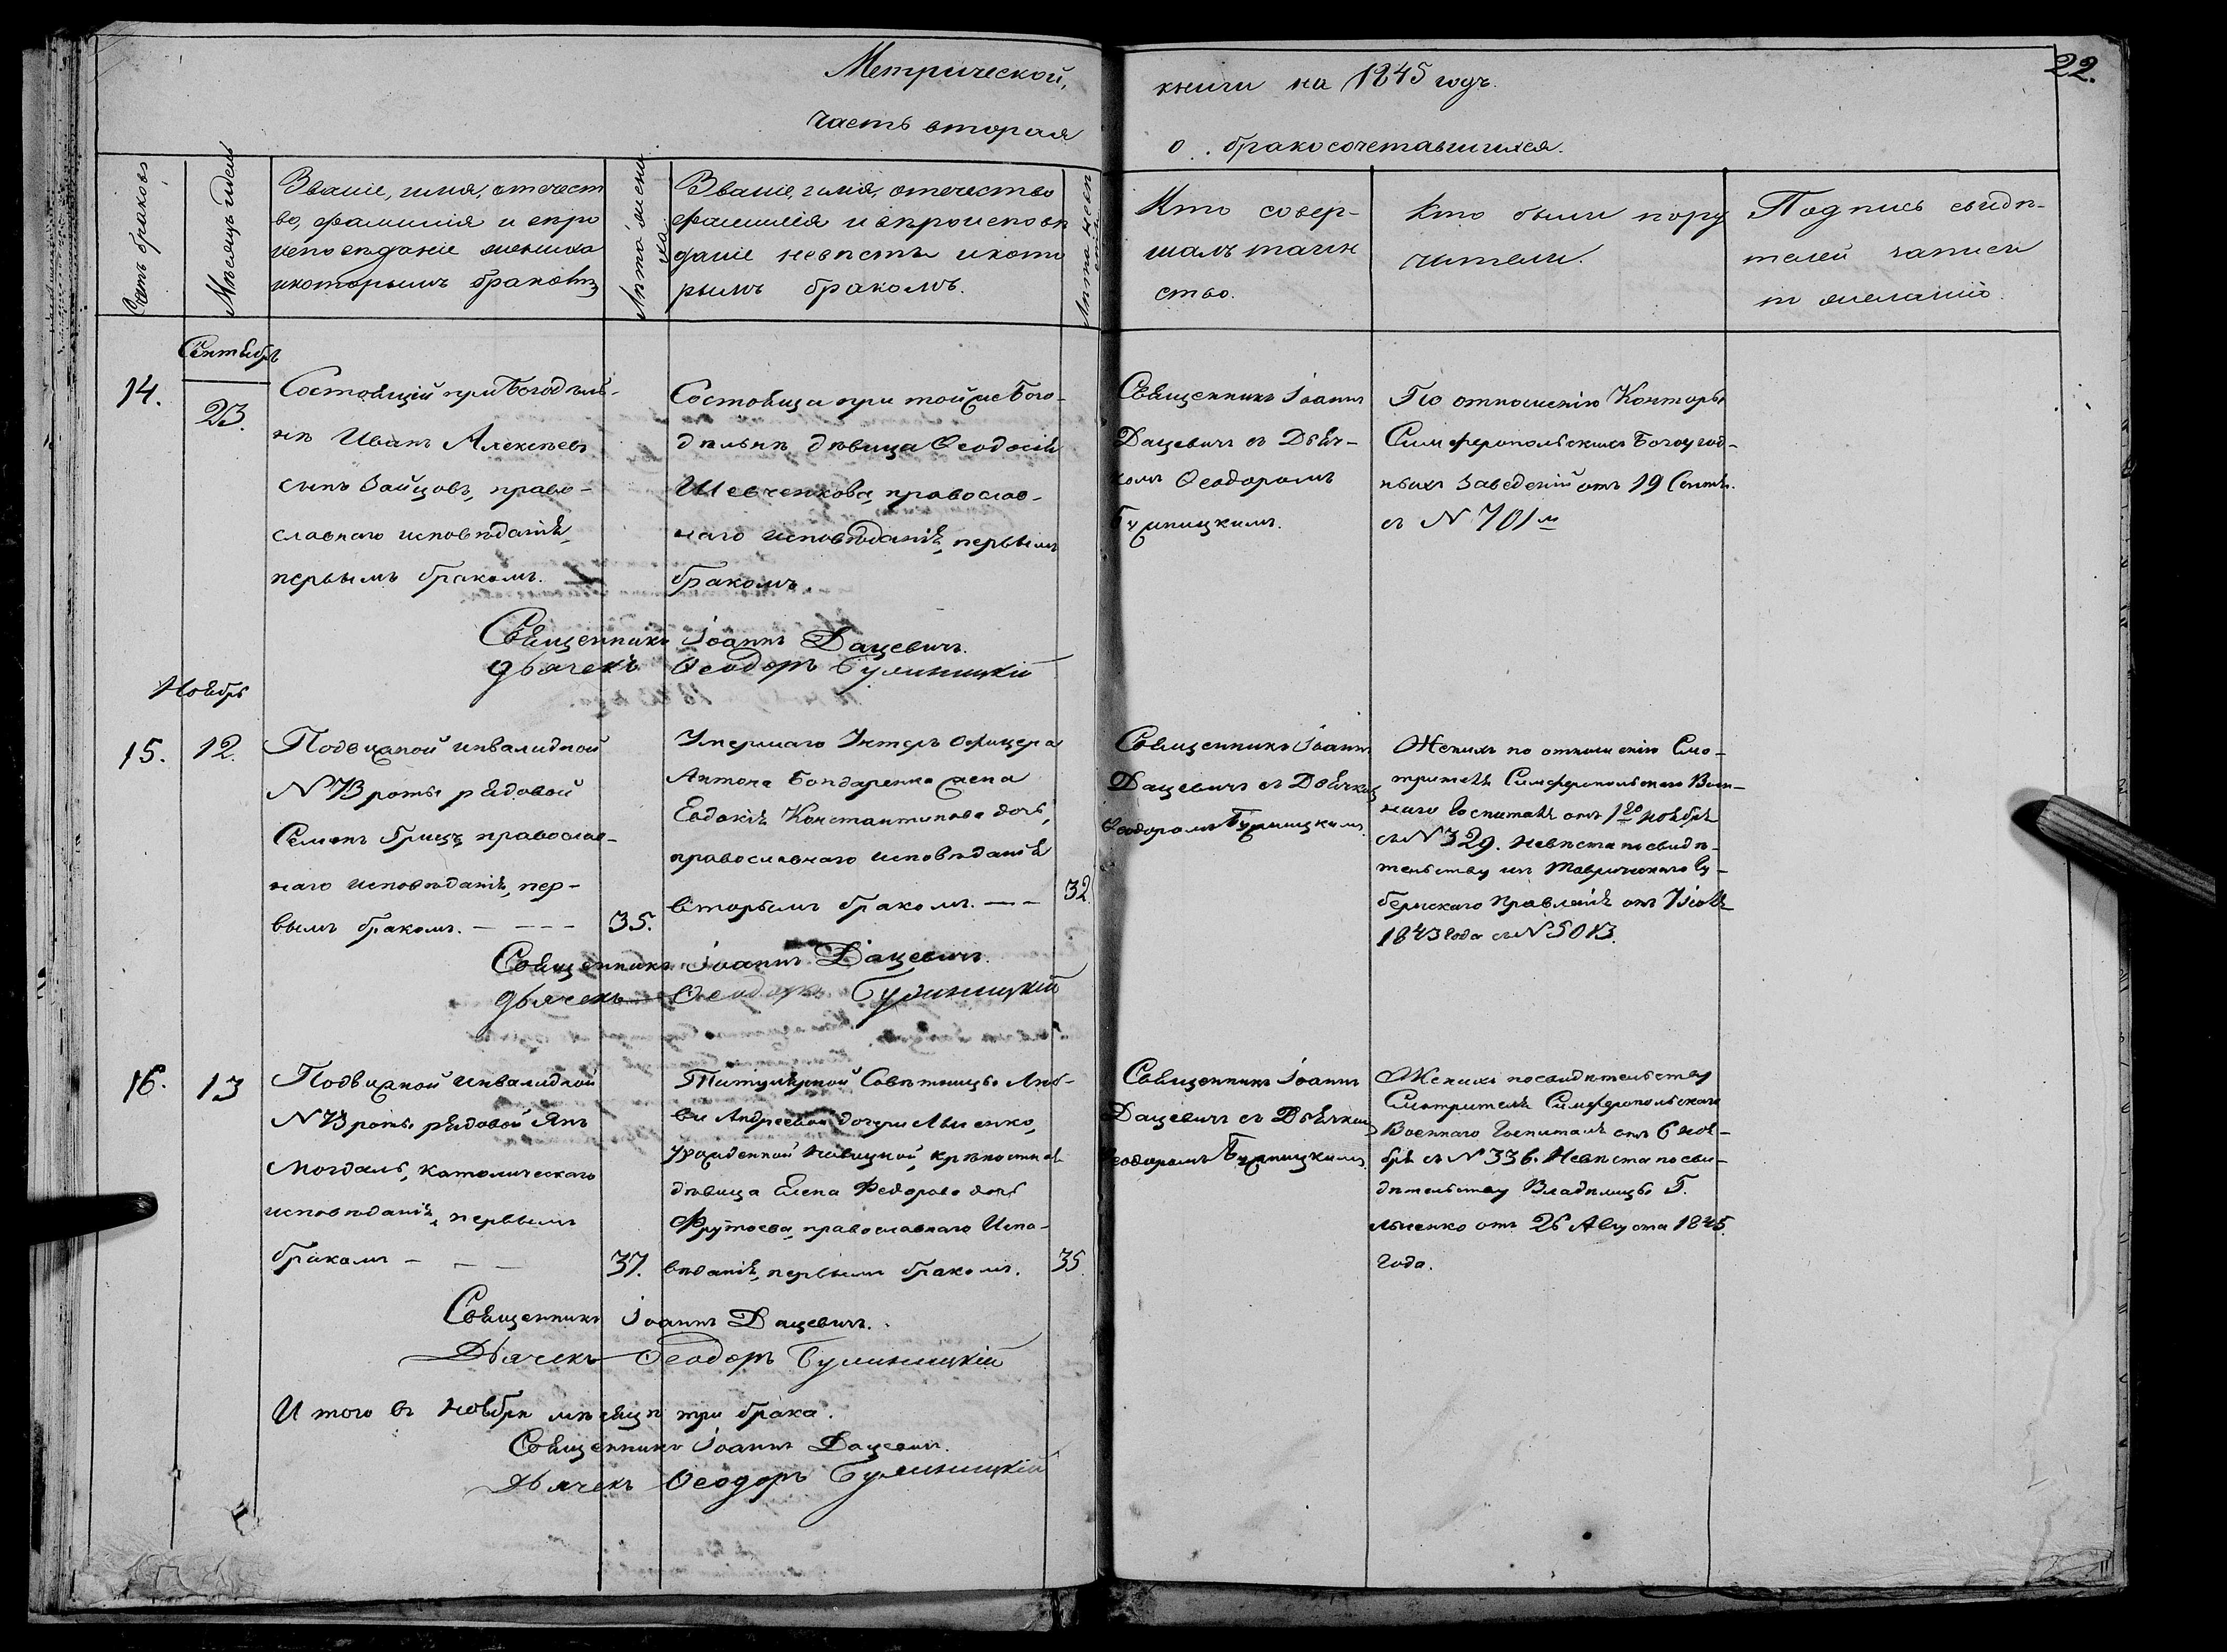 Метрической,
часть вторая
книги на 1845 годъ.
о бракосочетавшихся.
22.
Счетъ браковъ
Мѣсяцъ и день
Званіе, имя, отечест
во, фамилія и
исповѣданіе жениха
и которымъ бракомъ
Лѣта жени
ха
Званіе, имя, отечество
фамилія и вѣроисповѣ
даніе невѣсты и кото
рымъ бракомъ.
Лѣта невѣс
ты
Кто совер-
шалъ таин
ство.
Кто были пору
чители.
Подпись свидѣ-
телей записи
по желанію.
Сентябрь
14.
23.
Состоящій при Богодѣль-
нѣ Иванъ Алексѣевъ
сынъ Зайцовъ, право-
славнаго исповѣданія,
первымъ бракомъ.
Состояща при той же Бого-
дѣльнѣ дѣвица Ѳеодосія
Шевченкова, православ-
наго исповѣданія, первымъ
бракомъ.
Священникъ Іоаннъ
Дацевичъ съ Дьяч-
комъ Ѳеодоромъ
По отношенію Конторы
Симферопольскихъ Богоугод-
ныхъ Заведеній отъ 19 Сентяб.
съ N 701м
Священникъ Іоаннъ Дацевичъ.
дьячекъ Ѳеодоръ
Ноябрь
15.
12.
Подвижной инвалидной
N 73 роты рядовой
Семенъ Грицъ, православ-
наго исповѣданія, пер-
вымъ бракомъ. - - - -
35.
Умершаго Унтеръ Офицера
Антона Бондаренка жена
Евдокія Константинова дочь,
православнаго исповѣданія
вторымъ бракомъ. - -
32.
Священникъ Іоаннъ
Дацевичъ съ Дьячкомъ
Ѳеодоромъ
Женихъ по отношенію Смо-
трителя Симферопольскаго Воен-
наго Госпиталя отъ 1го ноября
съ N 329. Невѣста по свидѣ-
тельству изъ Таврическаго Гу-
бернскаго Правленія отъ 7 іюля
1843 года съ N 5013.
Священникъ Іоаннъ Дацевичъ.
дьячекъ Ѳеодоръ
16.
13
Подвижной инвалидной
N 73 роты рядовой Янъ
Могдаль, католическаго
исповѣданія, первымъ
бракомъ - - -
37.
Титулярной Совѣтницы Люб-
ви Андреевой дочери Лысенко,
урожденной Навицкой, крѣпостная
дѣвица Елена Федорова дочь
православнаго Испо-
вѣданія, первымъ бракомъ.
35
Священникъ Іоаннъ
Дацевичъ съ Дьячкомъ
Ѳеодоромъ
Женихъ по свидѣтельству
Смотрителя Симферопольскаго
Военнаго Госпиталя отъ 6 ноя-
бря съ N 336. Невѣста по сви-
дѣтельству Владѣлицы Г.
Лысенко отъ 26 Августа 1845.
года.
Священникъ Іоаннъ Дацевичъ.
Дьячекъ Ѳеодоръ
Итого въ ноябрѣ мѣсяцѣ три брака.
Священникъ Іоаннъ Дацевичъ.
Дьячекъ Ѳеодоръ